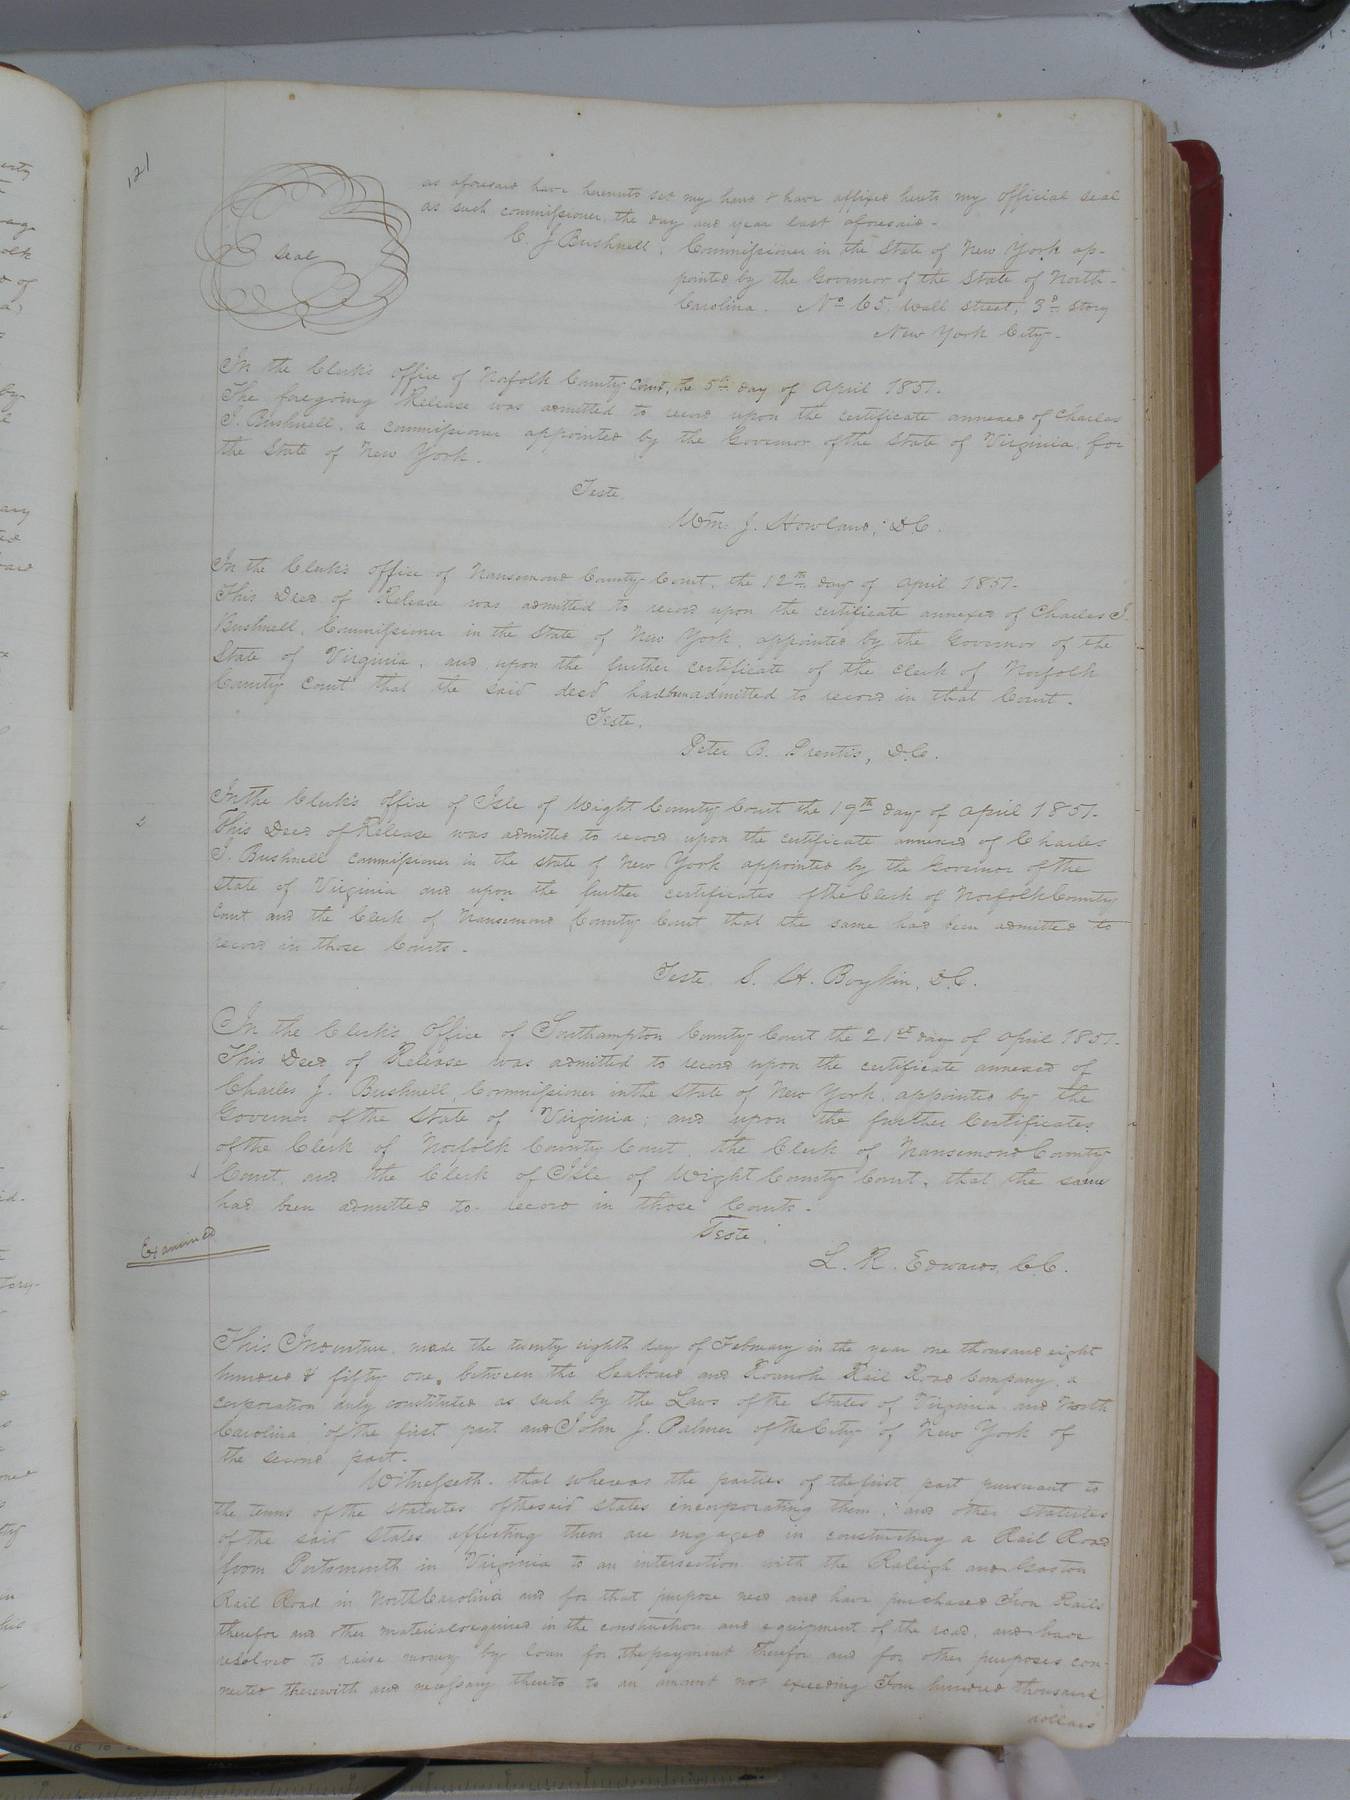 121
as aforesaid have hereunto set my hand & have affixed hereto my official seal
as such commissioner, the day and year last aforesaid.
Seal
C. J Bushnell, Commissioner in the State of New York ap-
pointed by the Governor of the State of North-
Carolina. No 65, Wall Street, 3d Story
New York City.
In the Clerk's office of Norfolk County Court, the 5th day of April 1851.
The foregoing Release was admitted to record upon the certificate annexed of Charles
J. Bushnell, a commissioner appointed by the Governor of the State of Virginia, for
the State of New York.
Teste,
Wm. J. Howland, D.C.
In the Clerk's office of Nansemond County Court, the 12th day of April 1851.
This Deed of Release was admitted to record upon the certificate annexed of Charles J.
Bushnell, Commissioner in the State of New York, appointed by the Governor of the
State of Virginia, and upon the further certificate of the clerk of Norfolk
County Court that the said deed had been admitted to record in that Court.
Teste,
Peter B. Prentis, D.C.
In the Clerk's office of Isle of Wight County Court the 19th day of April 1851.
This Deed of Release was admitted to record upon the certificate annexed of Charles
J. Bushnell commissioner in the state of New York appointed by the Governor of the
State of Virginia and upon the further certificates of the Clerk of Norfolk County
Court and the Clerk of Nansemond County Court that the same had been admitted to
record in those Courts.
Teste, Boykin, D.C.
In the Clerk's Office of Southampton County Court the 21st day of April 1851.
This Deed of Release was admitted to record upon the certificate annexed of
Charles J. Bushnell, Commissioner in the State of New York, appointed by the
Governor of the State of Virginia; and upon the further Certificates
of the Clerk of Norfolk County Court, the Clerk of Nansemond County
Court, and the Clerk of Isle of Wight County Court, that the same
had been admitted to record in those Courts.
Teste,
Examined
L. R. Edwards, C.C.
This Indenture, made the twenty eighth day of February in the year one thousand eight
hundred & fifty one, between the Seaboard and Roanoke Rail Road Company, a
corporation duly constituted as such by the Laws of the States of Virginia and North
Carolina of the first part and John J. Palmer of the City of New York of
the second part.
Witnesseth, that whereas the parties of the first part pursuant to
the terms of the statutes of the said States incorporating them, and other statutes
of the said States affecting them are engaged in constructing a Rail Road
from Portsmouth in Virginia to an intersection with the Raleigh and Gaston
Rail Road in North Carolina and for that purpose need and have purchased Iron Rails
therefor and other materials required in the construction and equipment of the road, and have
resolved to raise money by loan for the payment therefor and for other purposes con-
nected therewith and necessary thereto to an amount not exceeding Four hundred thousand
dollars